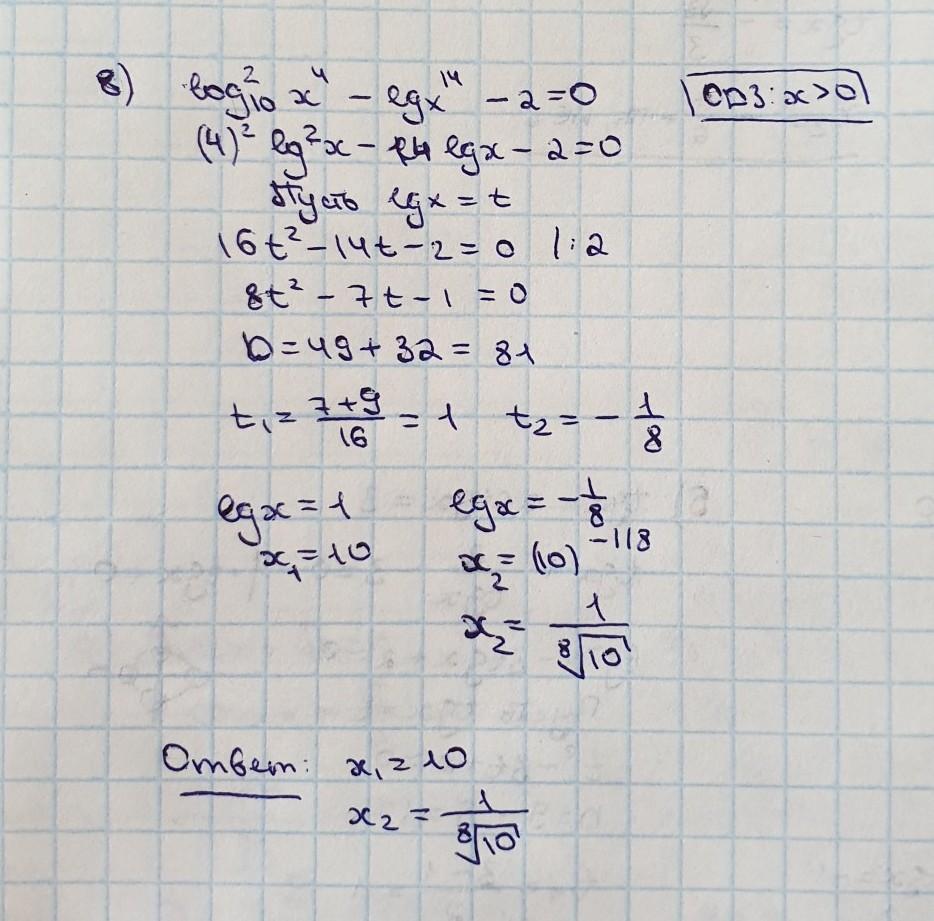 в) log²₁₀ x⁴ - lgx¹⁴ - 2 = 0 ОДЗ: x > 0
(4)² lg²x - 14 lgx - 2 = 0
Пусть lgx = t
16t² - 14t - 2 = 0 |:2
8t² - 7t - 1 = 0
D = 49 + 32 = 81
t₁ = (7+9)/16 = 1 t₂ = - 1/8
lgx = 1 lgx = - 1/8
x₁ = 10 x₂ = (10)^(-1/8)
x₂ = 1/⁸√10
Ответ: x₁ = 10
x₂ = 1/⁸√10